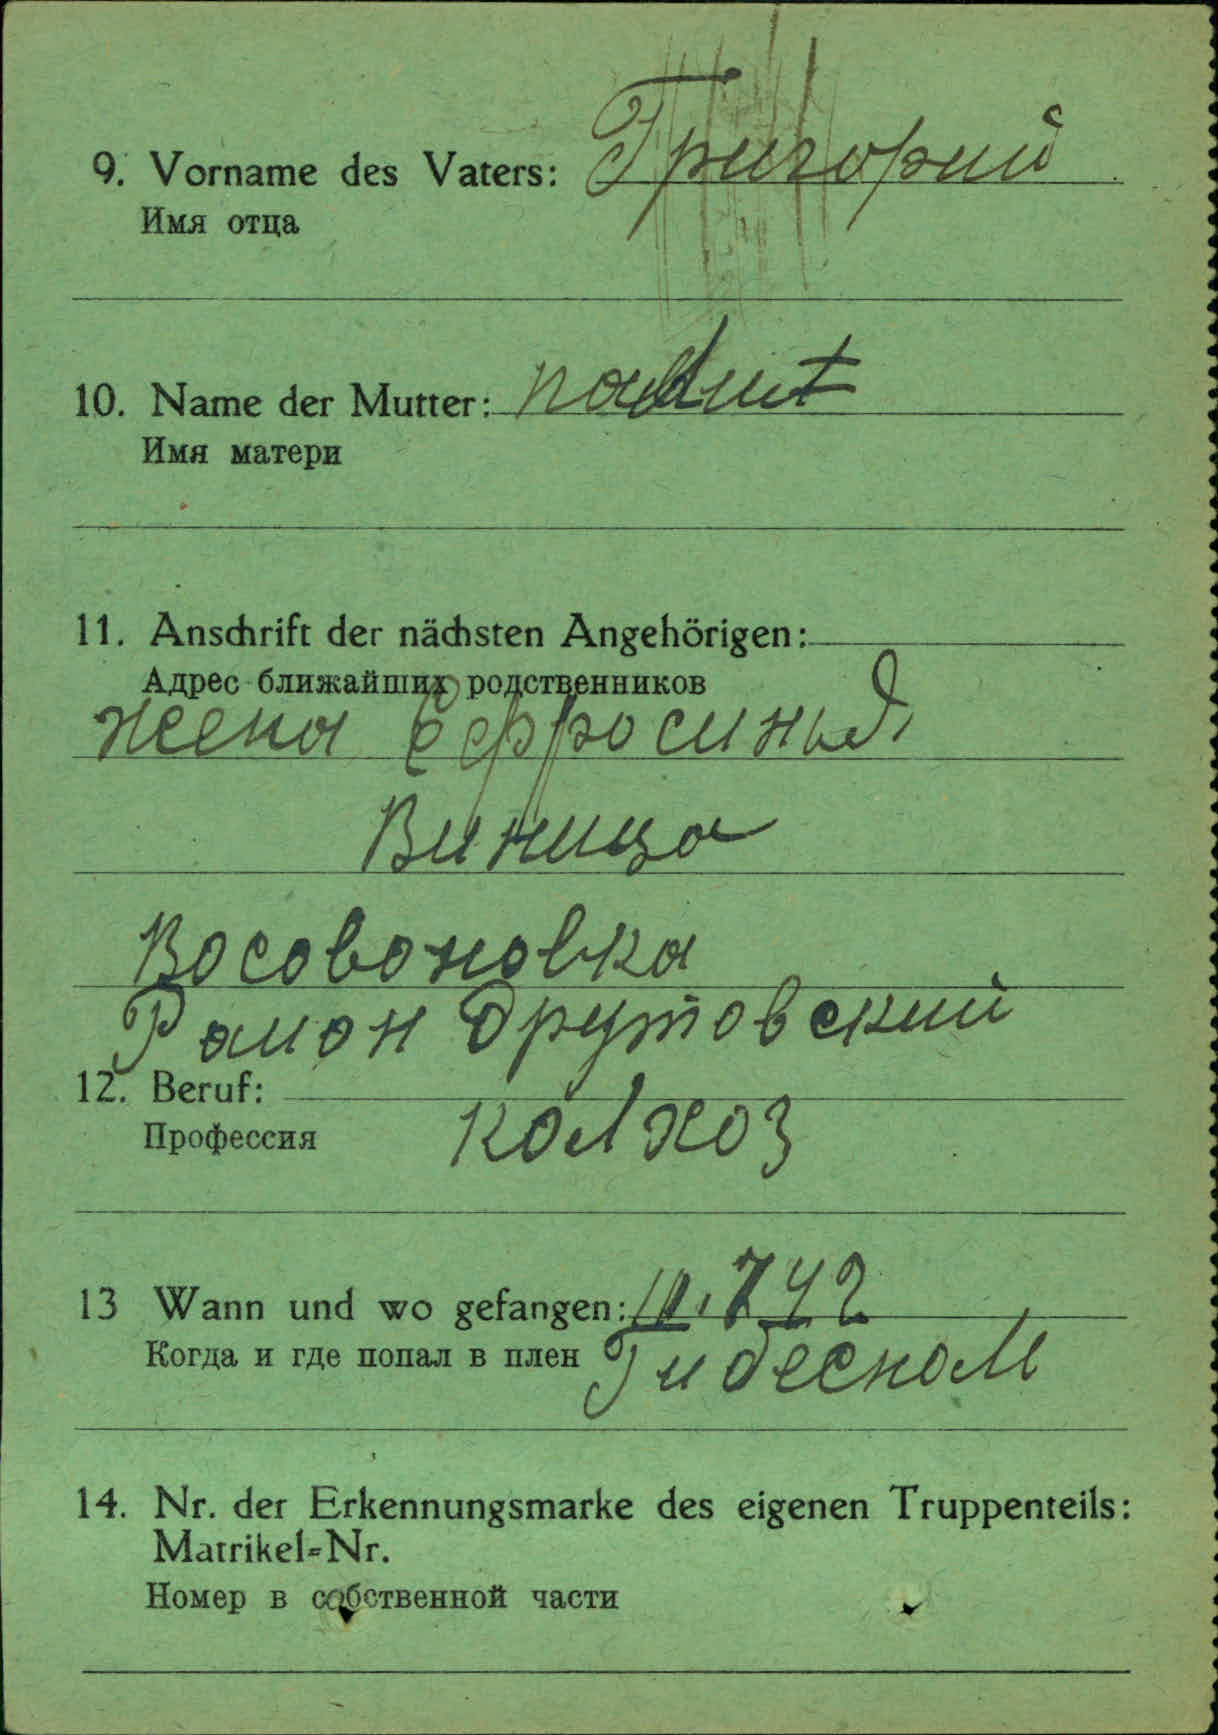 9. Vorname des Vaters: Григорий
Имя отца
10. Name der Mutter:
Имя матери
11. Anschrift der nächsten Angehörigen:
Адрес ближайших родственников
жена Ефросинья
Виница
Восовоновка
Район Орутовский
12. Beruf:
Профессия колхоз
13 Wann und wo gefangen: 742
Когда и где попал в плен
14. Nr. der Erkennungsmarke des eigenen Truppenteils:
Matrikel-Nr.
Номер в собственной части